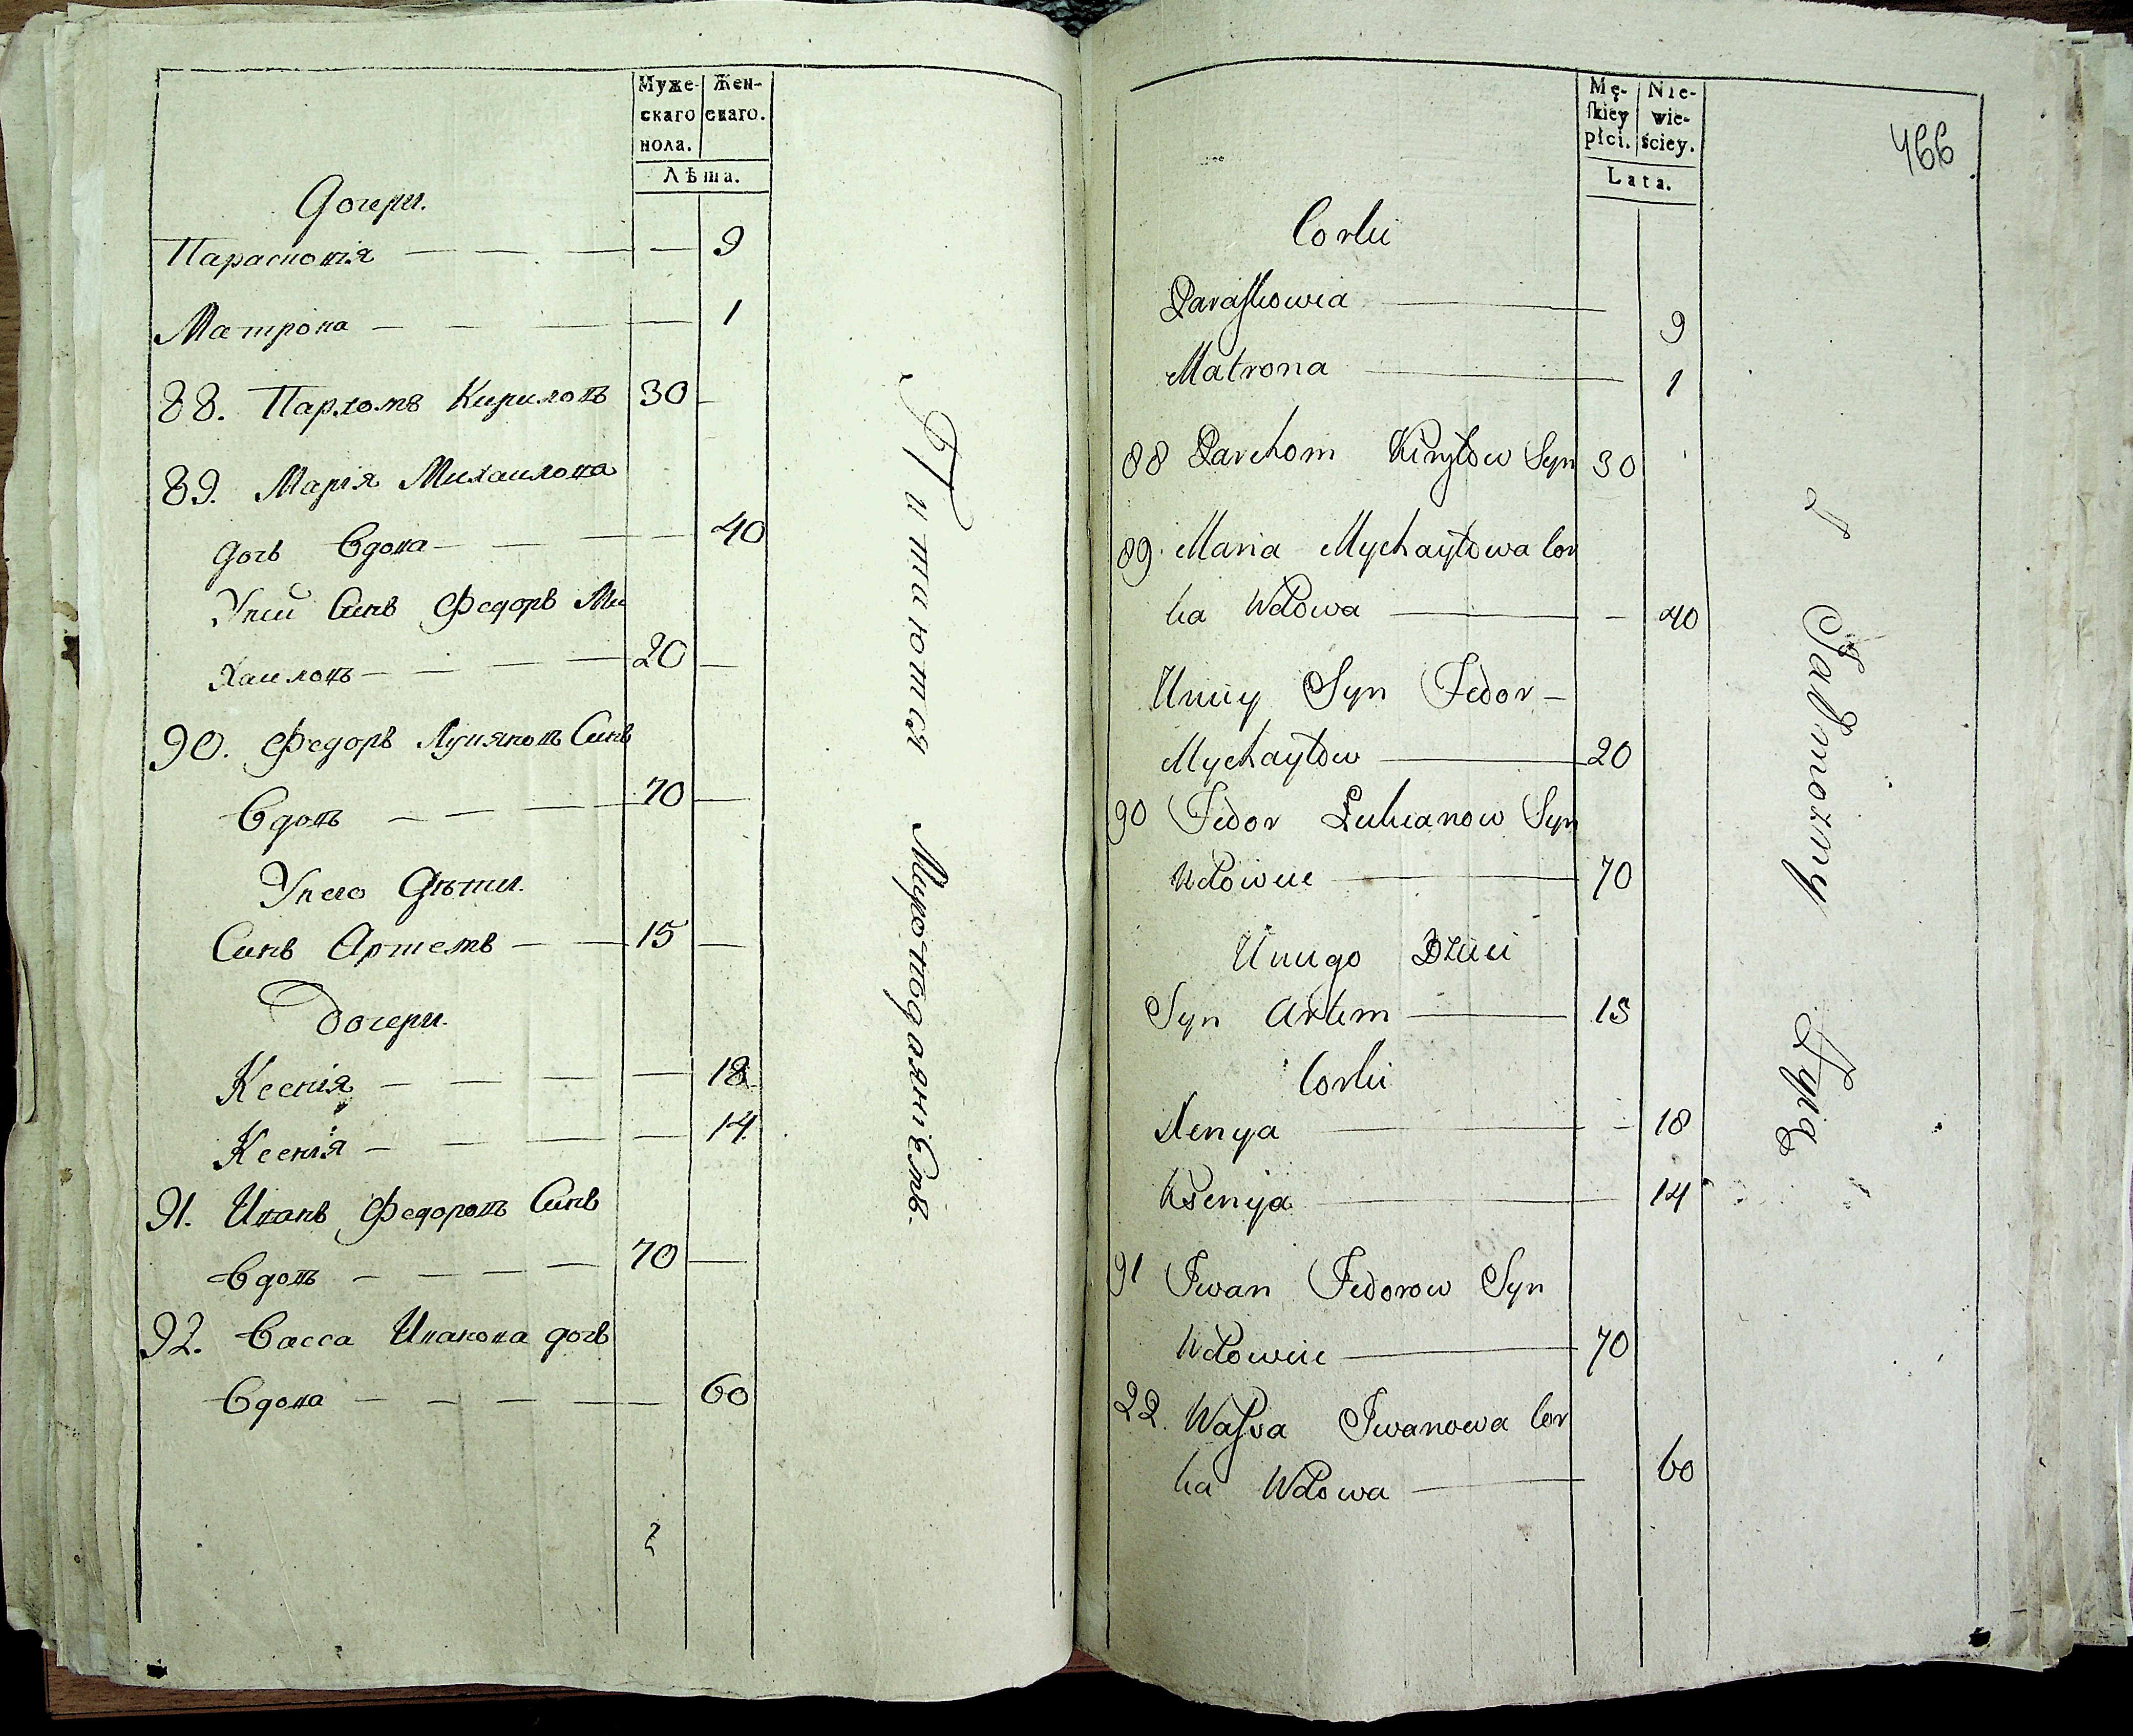 Муже-
скаго
пола.
Жен-
скаго.
Лѣта.
Дочери.
Парасковія — — — — 9
Матрона — — — — 1
88. Пархомъ Кириловъ 30 —
89. Марія Михаилова
дочь Вдова — — — — 40
Уней Синъ Федоръ Ми
хаиловъ — — — 20 —
90. Федоръ Лукяновъ Синъ
Вдовъ — — — 70 —
Унего Дѣти.
Синъ Артемъ — — 15 —
Дочери.
Ксенія — — — — 18
Ксенія — — — — 14
91. Иванъ Федоровъ Синъ
Вдовъ — — — — 70 —
92. Васса Иванова дочь
Вдова — — — — — 60
Питаются Мироподаяніемъ.
466
Mę-
skiey
płci.
Nie-
wie-
ściey.
Lata.
Corki
Paraskowia — 9
Matrona — 1
88 Parchom Kiryłow Syn 30
89. Maria Mychayłowa Cor
ka Wdowa — — 40
Uniey Syn Fedor —
Mychayłow — 20
90 Fedor Łukianow Syn
Wdowiec — 70
Uniego Dzieci
Syn Artem — 15
Corki
Xenya — — 18
Ksenija — 14
91 Iwan Fedorow Syn
Wdowiec — 70
22. Wassa Iwanowa Cor
ka Wdowa — 60
z Jałmużny żyią